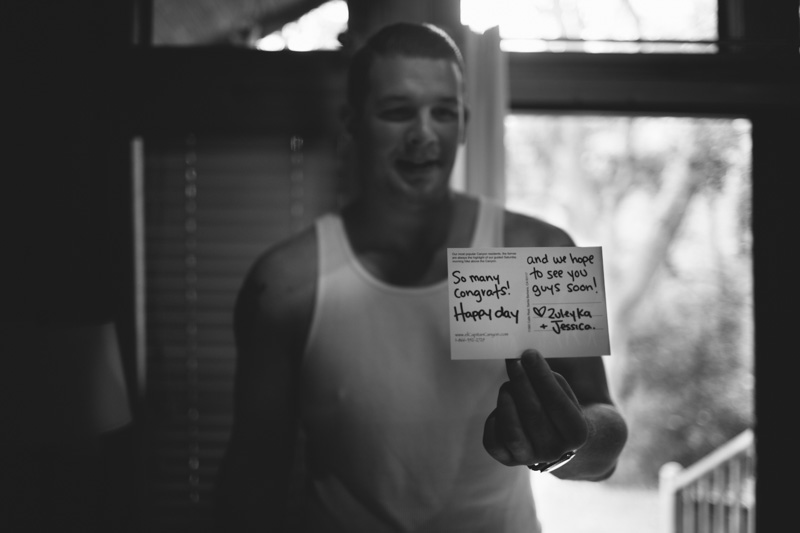 So many
Congrats!
Happy day
and we hope
to see you
guys soon!
♡ Zuleyka
+ Jessica.